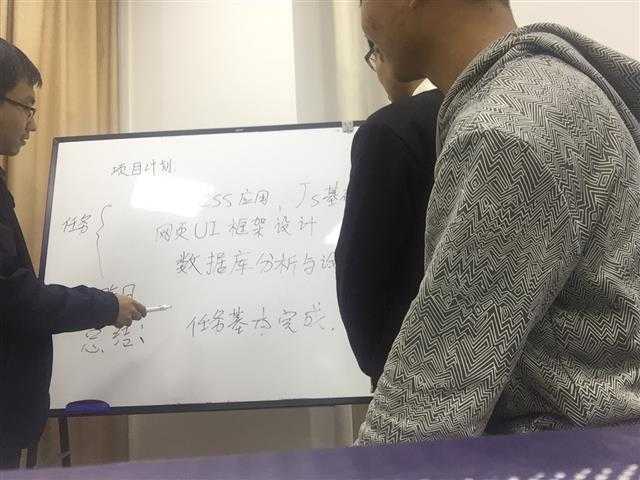 项目计划
CSS应用，Js基
任务
网页UI框架设计
数据库分析与设
总结：
任务基本完成.